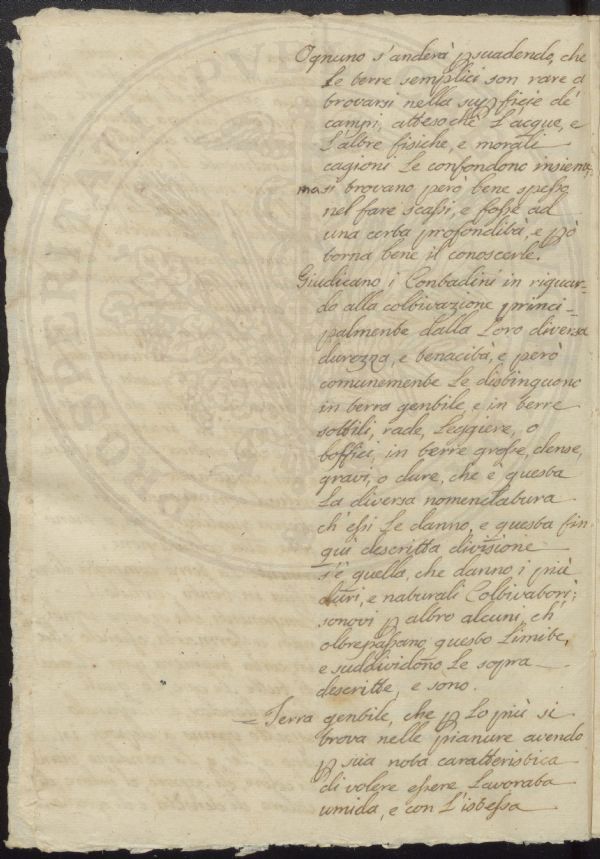 Ognuno s'anderà psuadendo, che
Le terre semplici son rare a
trovarsi nella supficie de'
campi, attesochè L'acque, e
L'altre fisiche, e morali
cagioni Le confondono insieme,
ma si trovano però bene spesso
nel fare scassi, e fosse ad
una certa profondità, e pò
torna bene il conoscerle.
Giudicano i Contadini in riguar-
do alla coltivazione princi-
palmente dalla Loro diversa
durezza, e tenacità, e però
comunemente Le distinguono
in terra gentile, e in terre
sottili, rade, Leggiere, o
soffici, in terre grosse, dense,
gravi, o dure, che è questa
La diversa nomenclatura
ch'essi Le danno, e questa fin
quì descritta divisione
s'è quella, che danno i più
duri, e naturali Coltivatori;
sonovi p altro alcuni, ch'
oltrepassano questo Limite,
e suddividono Le sopra
descritte, e sono.
= Terra gentile, che p Lo più si
trova nelle pianure avendo
p sua nota caratteristica
di volere essere Lavorata
umida, e con L'istessa